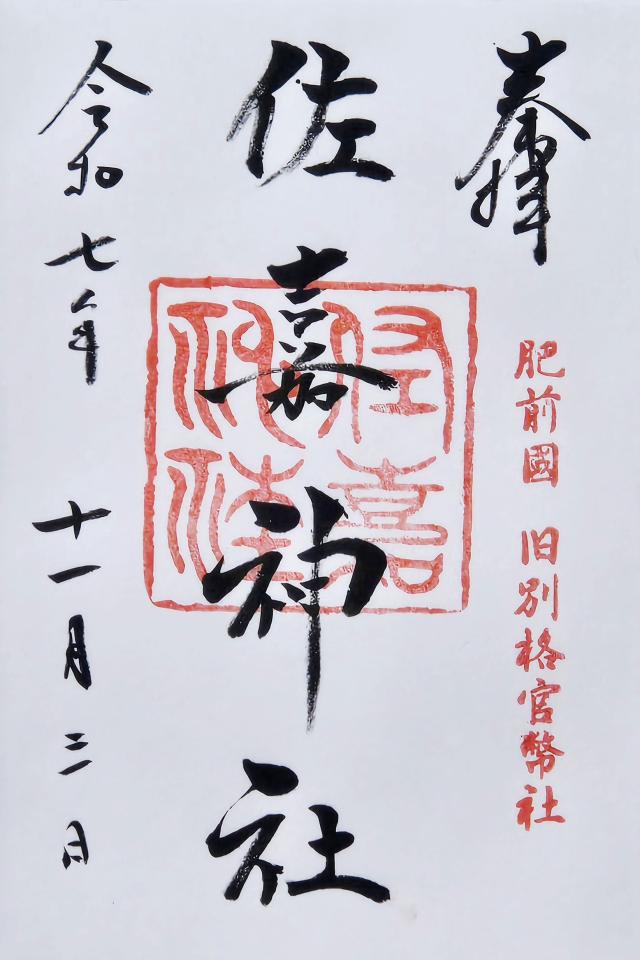 奉拝
肥前國 旧別格官幣社
佐嘉神社
佐嘉神社
令和七年 十一月三日